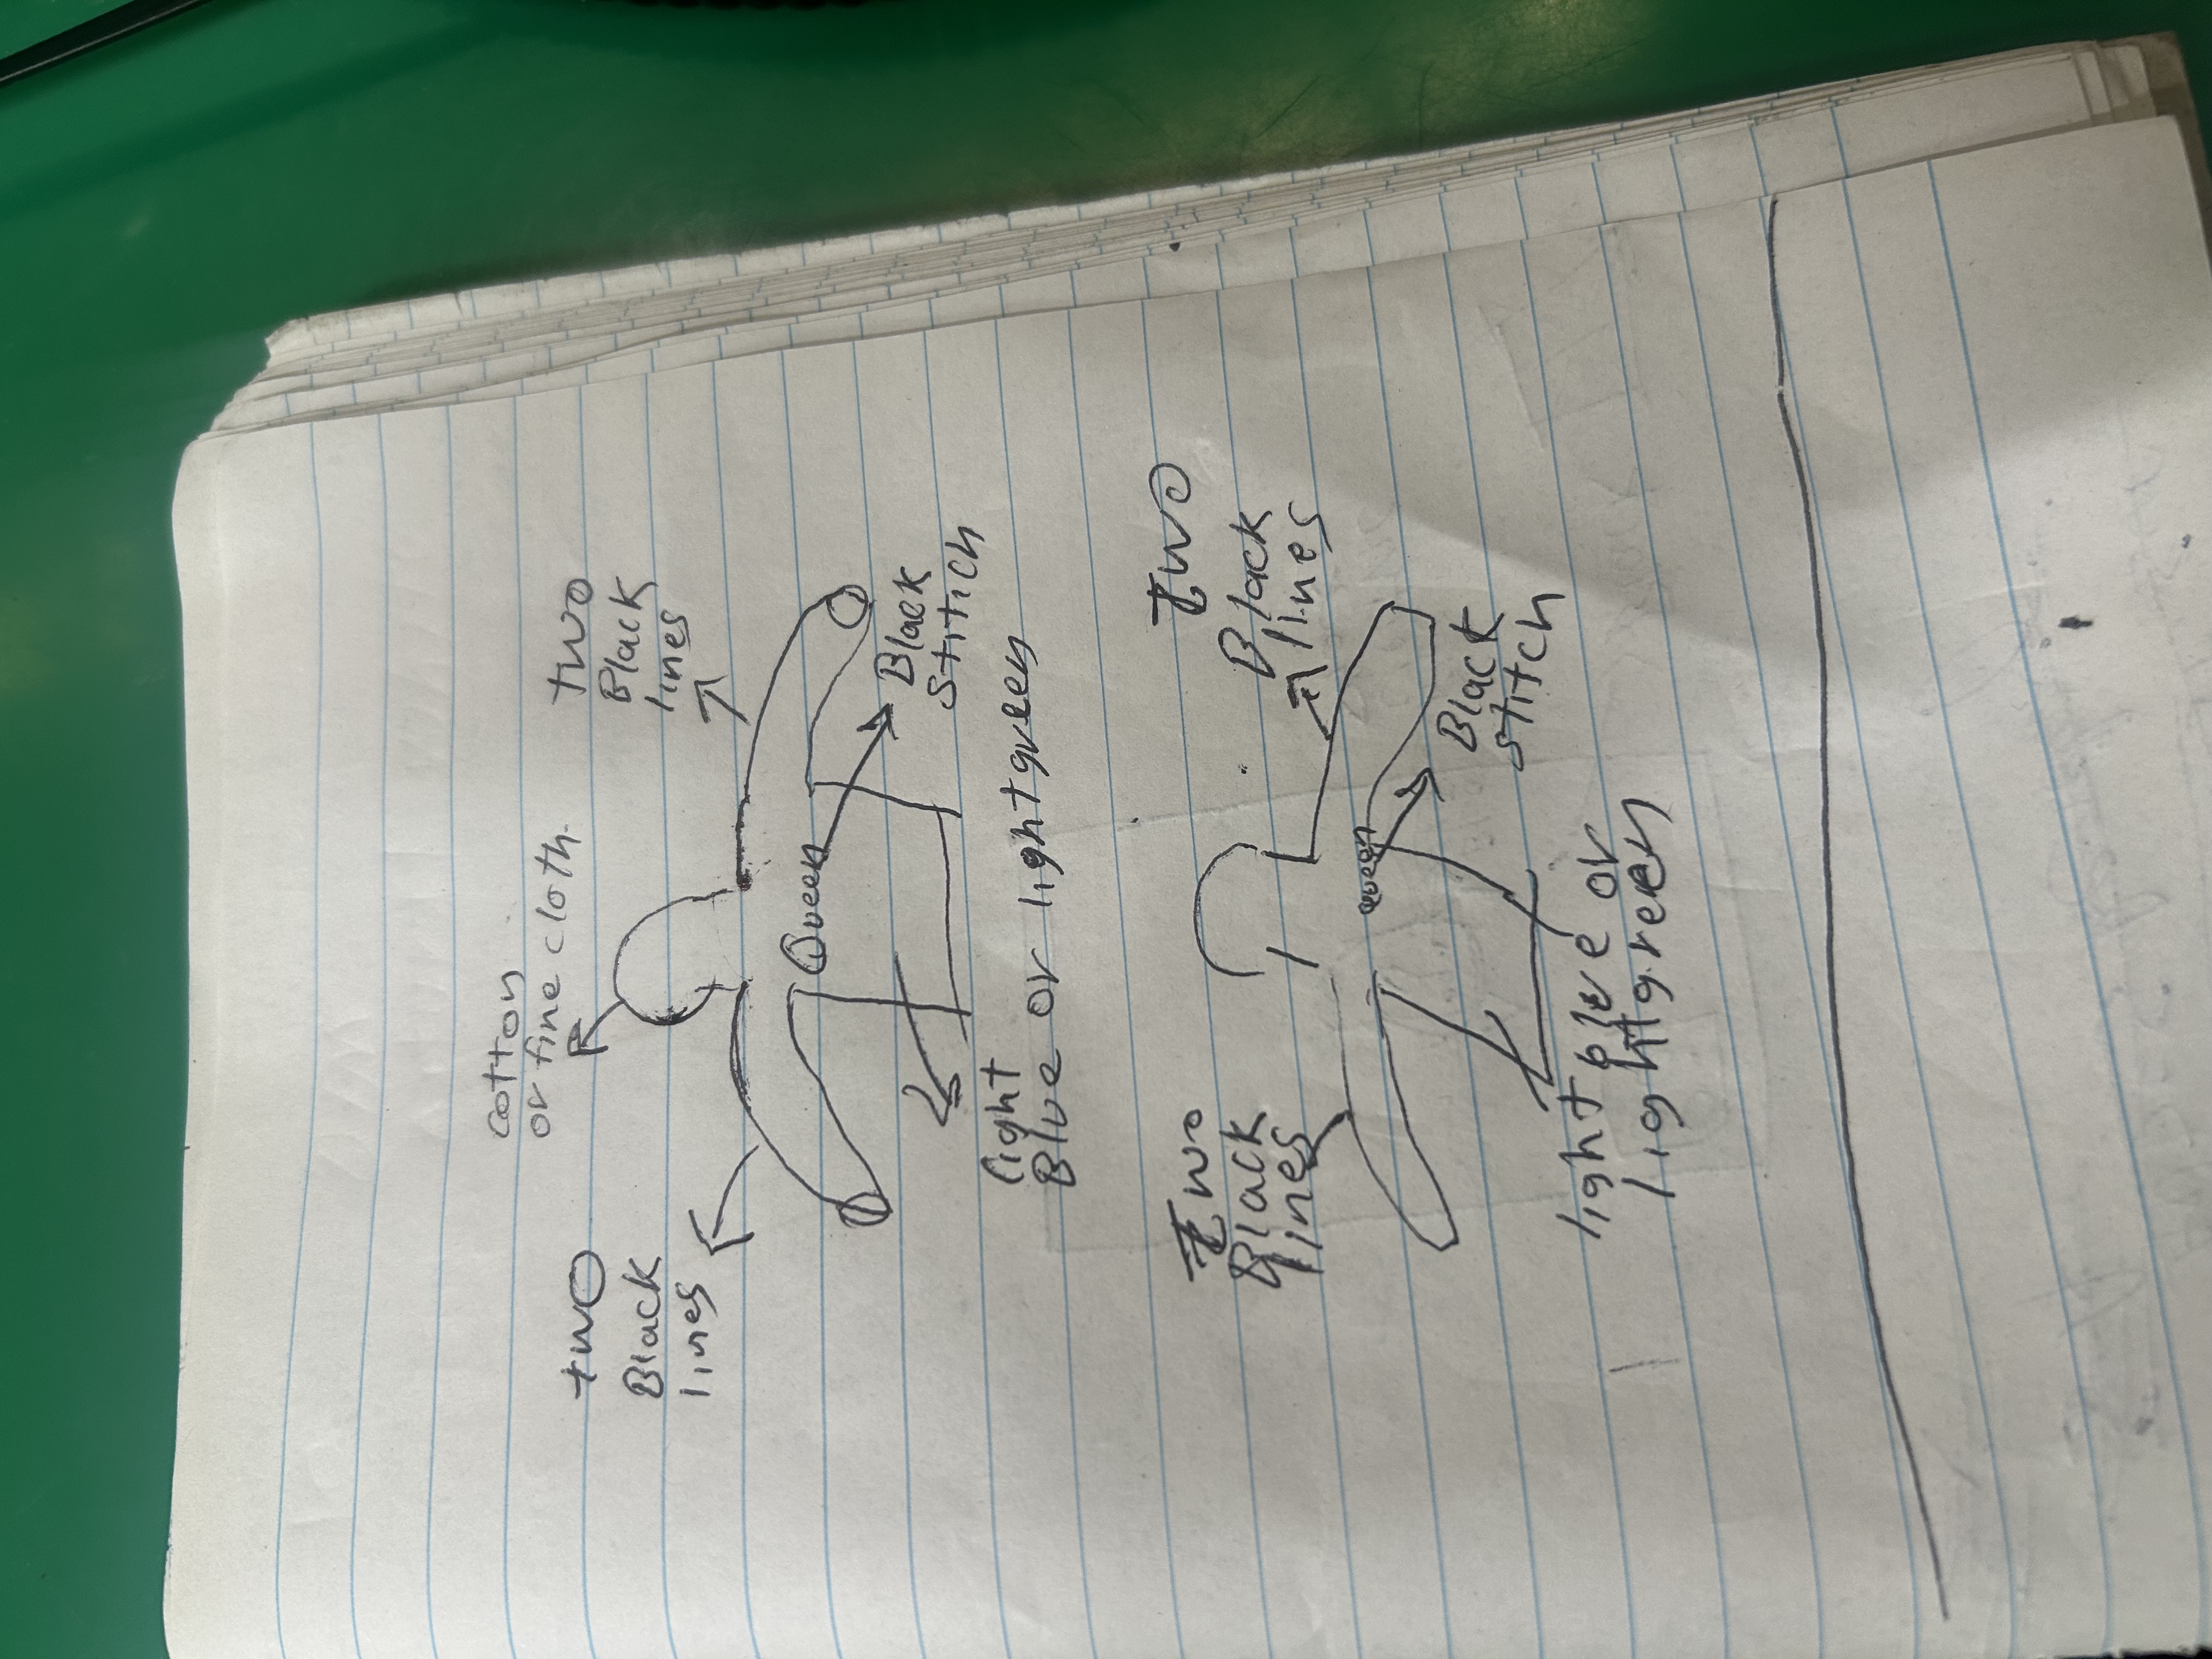 cotton
or fine cloth.
two
Black
lines
two
Black
lines
Queen
Black
Stitich
light
Blue or lightgreen
two
Black
lines
two
Black
lines
Queen
Black
stitch
light blue or
lightgreen